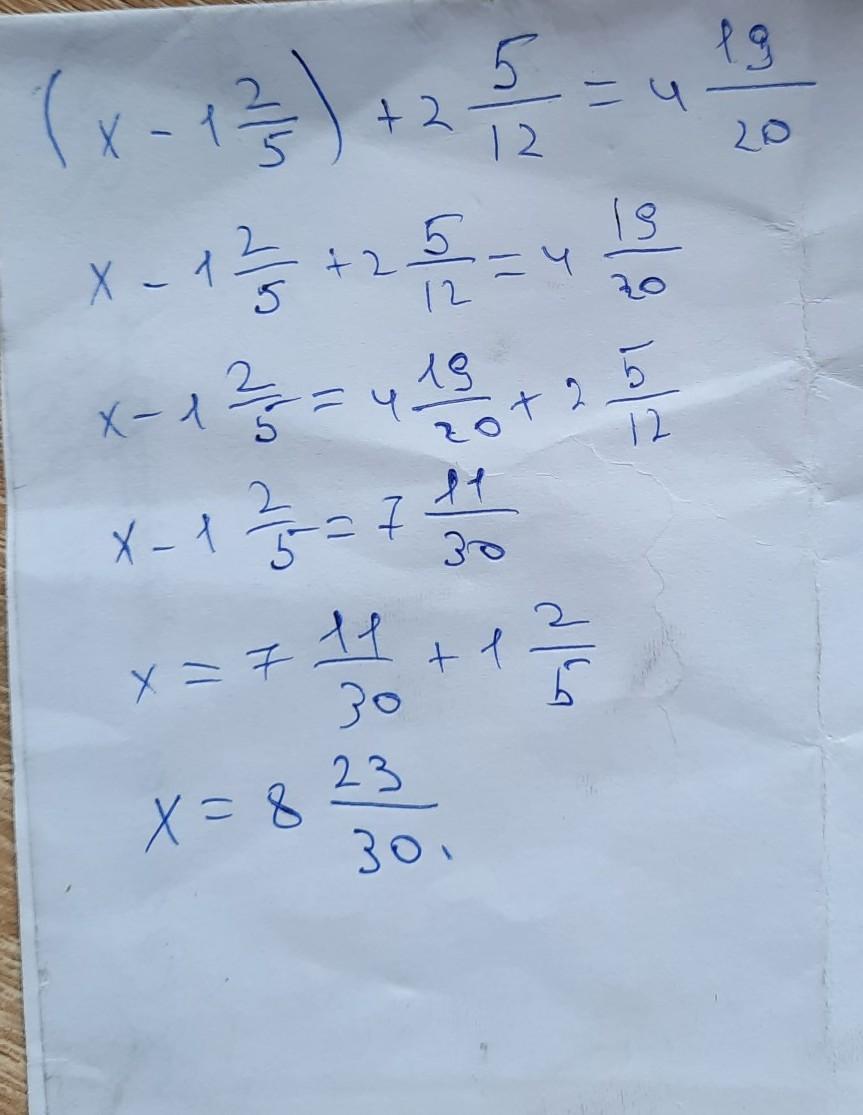 (x - 1 2/5) + 2 5/12 = 4 19/20
x - 1 2/5 + 2 5/12 = 4 19/20
x - 1 2/5 = 4 19/20 + 2 5/12
x - 1 2/5 = 7 11/30
x = 7 11/30 + 1 2/5
x = 8 23/30.